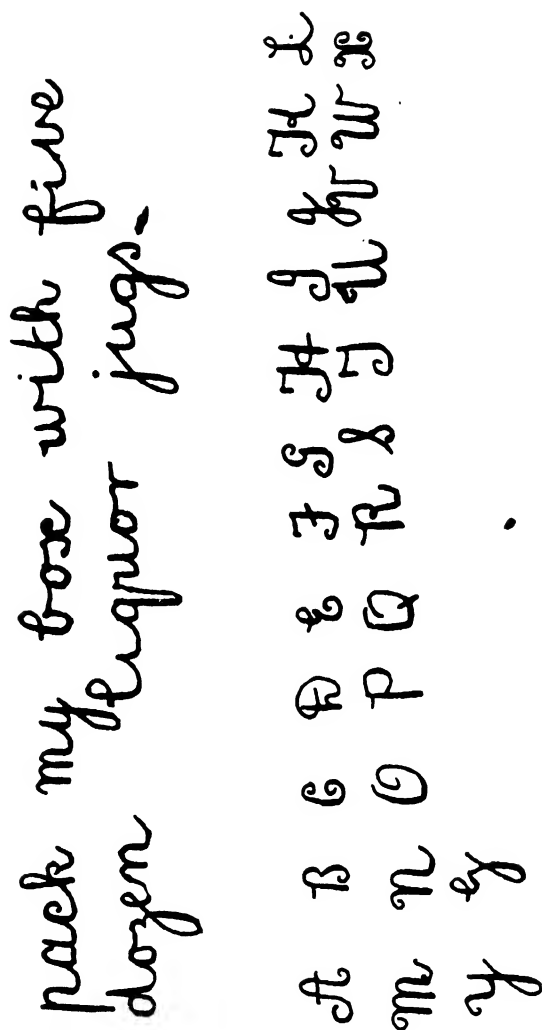 pack my box with five
dozen liquor jugs.
A B C D E F G H I J K L
M N O P Q R S T U V W X
Y Z